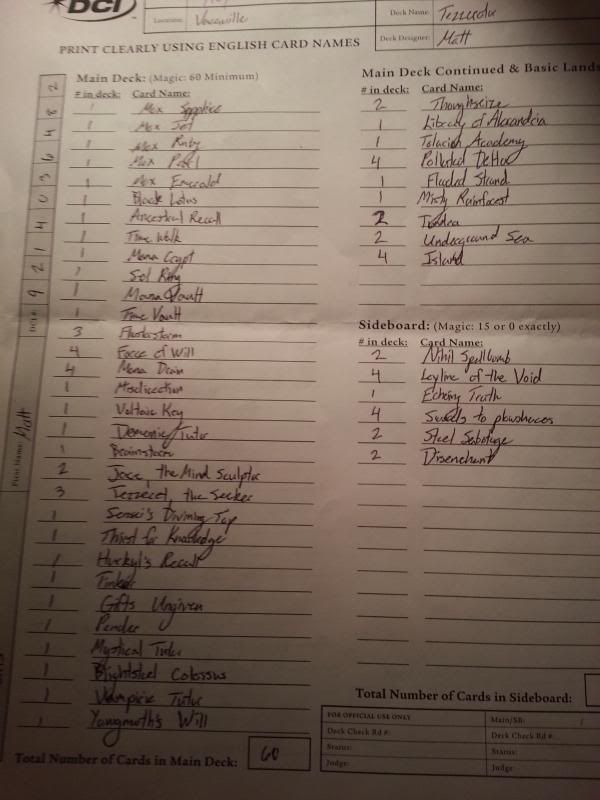 DCI
Location: Vacaville
Deck Name: Tezzerator
Deck Designer: Matt
PRINT CLEARLY USING ENGLISH CARD NAMES
Main Deck: (Magic: 60 Minimum)
# in deck: Card Name:
1 Mox Sapphire
1 Mox Jet
1 Mox Ruby
1 Mox Pearl
1 Mox Emerald
1 Black Lotus
1 Ancestral Recall
1 Time Walk
1 Mana Crypt
1 Sol Ring
1 Mana Vault
1 Time Vault
3 Flusterstorm
4 Force of Will
4 Mana Drain
1 Misdirection
1 Voltaic Key
1 Demonic Tutor
1 Brainstorm
2 Jace, the Mind Sculptor
3 Tezzeret, the Seeker
1 Sensei's Divining Top
1 Thirst for Knowledge
1 Hurkyl's Recall
1 Tinker
1 Gifts Ungiven
1 Ponder
1 Mystical Tutor
1 Blightsteel Colossus
1 Vampiric Tutor
1 Yawgmoth's Will
Total Number of Cards in Main Deck: 60
Main Deck Continued & Basic Lands
# in deck: Card Name:
2 Thoughtseize
1 Library of Alexandria
1 Tolarian Academy
4 Polluted Delta
1 Flooded Strand
1 Misty Rainforest
2 Tundra
2 Underground Sea
4 Island
Sideboard: (Magic: 15 or 0 exactly)
# in deck: Card Name:
2 Nihil Spellbomb
4 Leyline of the Void
1 Echoing Truth
4 Swords to plowshares
2 Steel Sabotage
2 Disenchant
Total Number of Cards in Sideboard:
FOR OFFICIAL USE ONLY
Main/SB: /
Deck Check Rd #:
Deck Check Rd #:
Status:
Status:
Judge:
Judge:
DCI #: 9 2 1 4 0 3 6 4 8 2
Print Name: Matt